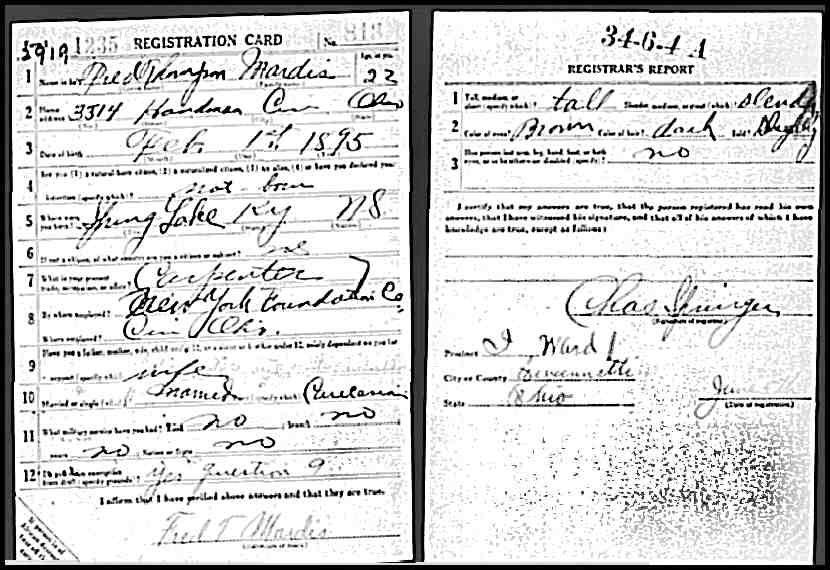 1235 REGISTRATION CARD No. 813
1 Name in full Fred Thompson Mardis Age, in yrs. 22
2 Home address 3314 Hardman Cin Ohio
3 Date of birth Feb 1st 1895
Are you (1) a natural-born citizen, (2) a naturalized citizen, (3) an alien, (4) or have you declared your
4 intention (specify which)? nat-born
5 Where were you born? Spring Lake Ky US
6 If not a citizen, of what country are you a citizen or subject?
7 What is your present trade, occupation, or office? Carpenter
8 By whom employed? New York Foundation Co.
Where employed? Cin Ohio.
Have you a father, mother, wife, child under 12, or a sister or brother under 12, solely dependent on you for
9 support (specify which)? wife
10 Married or single (which)? Married (specify which)? Caucasian
11 What military service have you had? Rank no branch no
years no Nation or State no
12 Do you claim exemption from draft (specify grounds)? Yes question 9
I affirm that I have verified above answers and that they are true.
Fred T Mardis
34-6-4 A
REGISTRAR'S REPORT
1 Tall, medium, or short (specify which)? tall Slender, medium, or stout (which)? slender
2 Color of eyes? Brown Color of hair? dark Bald? Slightly
3 Has person lost arm, leg, hand, foot, or both eyes, or is he otherwise disabled (specify)? no
I certify that my answers are true, that the person registered has read his own
answers, that I have witnessed his signature, and that all of his answers of which I have
knowledge are true, except as follows:
Chas Springer
(Signature of registrar)
Precinct I Ward 1
City or County Cincinnati
State Ohio June 5th
(Date of registration)